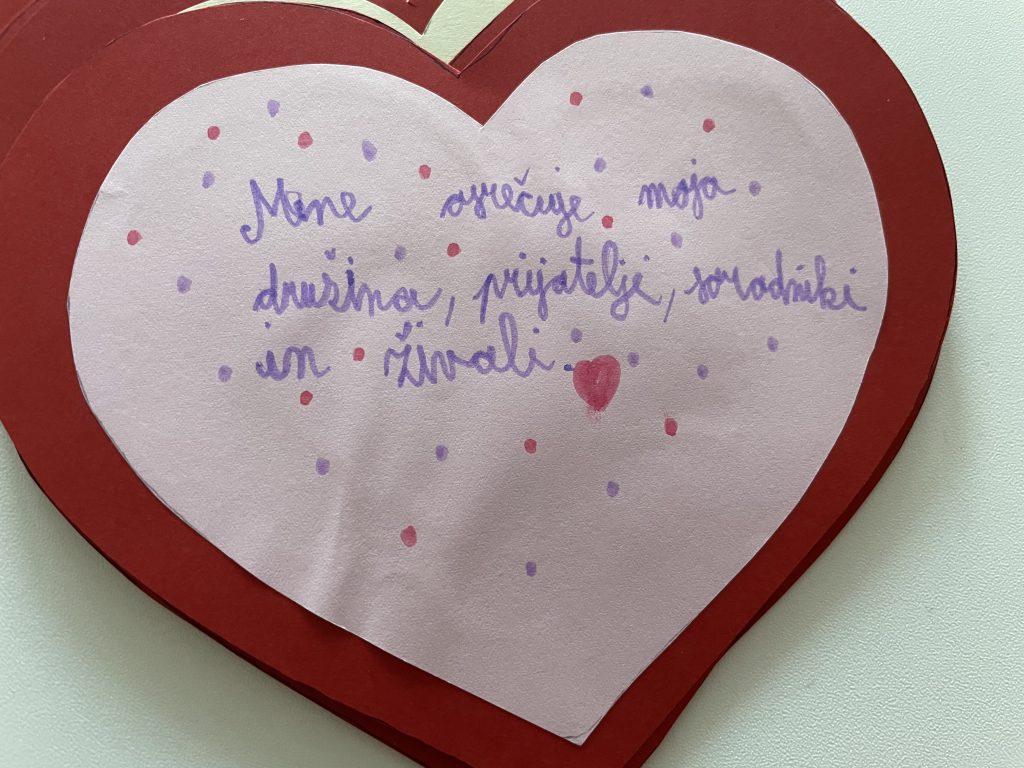 Mene osrečuje moja
družina, prijatelji, sorodniki
in živali.